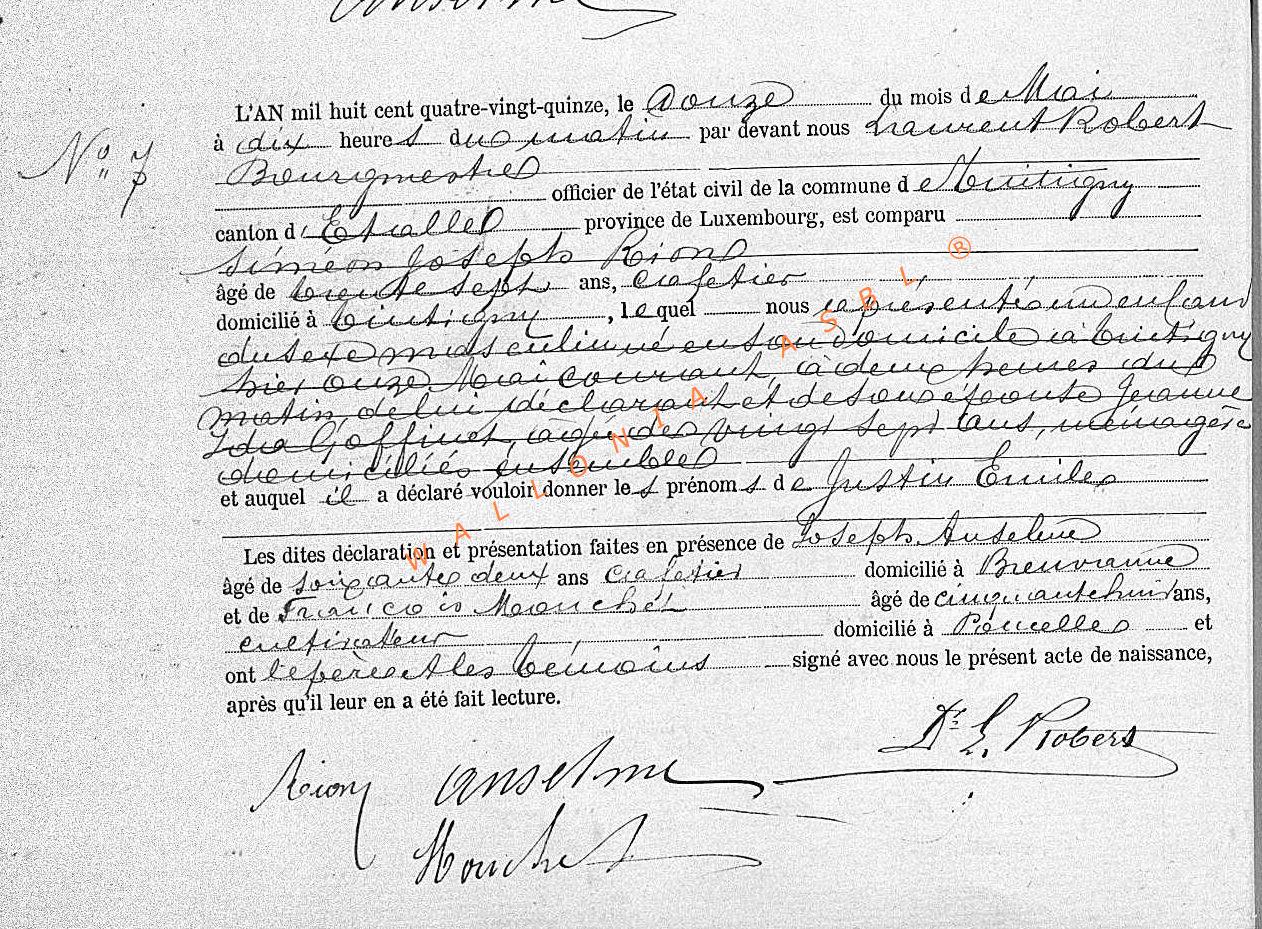 Anselme
N° 7
L'AN mil huit cent quatre-vingt-quinze, le Douze du mois de Mai
à dix heures du matin par devant nous Laurent Robert
Bourgmestre
officier de l'état civil de la commune de Tintigny
canton d'Etalle province de Luxembourg, est comparu
Siméon Joseph Rion
âgé de trente sept ans, Cafetier
domicilié à Tintigny, lequel nous a présenté un enfant
du sexe masculin né en son domicile à Tintigny
hier onze Mai courant, à deux heures du
matin, de lui déclarant et de son épouse Jeanne
Ida Goffinet, agée de vingt sept ans, ménagère
domiciliés ensemble
et auquel il a déclaré vouloir donner les prénoms de Justin Emile
Les dites déclaration et présentation faites en présence de Joseph Anselme
âgé de soixante deux ans Cafetier domicilié à Breuvanne
et de François Mouchet âgé de cinquante huit ans,
cultivateur domicilié à Poncelle et
ont le père et les témoins signé avec nous le présent acte de naissance,
après qu'il leur en a été fait lecture.
Dr L. Robert
Rion Anselme
Mouchet
WALLONIA ASBL ®